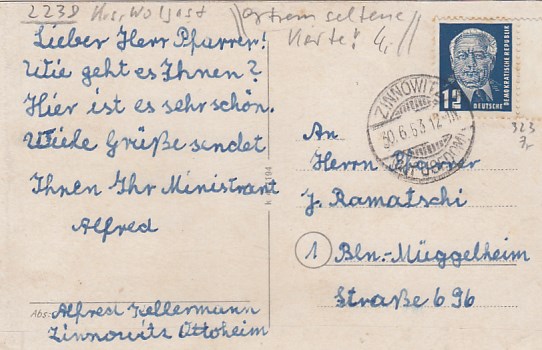 2238 Krs. Wolgast
extrem seltene
Karte!
Lieber Herr Pfarrer!
Wie geht es Ihnen?
Hier ist es sehr schön.
Viele Grüße sendet
Ihnen Ihr Ministrant
Alfred
Abs:
Alfred Kellermann
Zinnowitz Ottoheim
DEUTSCHE
DEMOKRATISCHE REPUBLIK
12
ZINNOWITZ
30.6.53.12
323
An
Herrn Pfarrer
J. Ramatschi
1 Bln.-Müggelheim
Straße 696